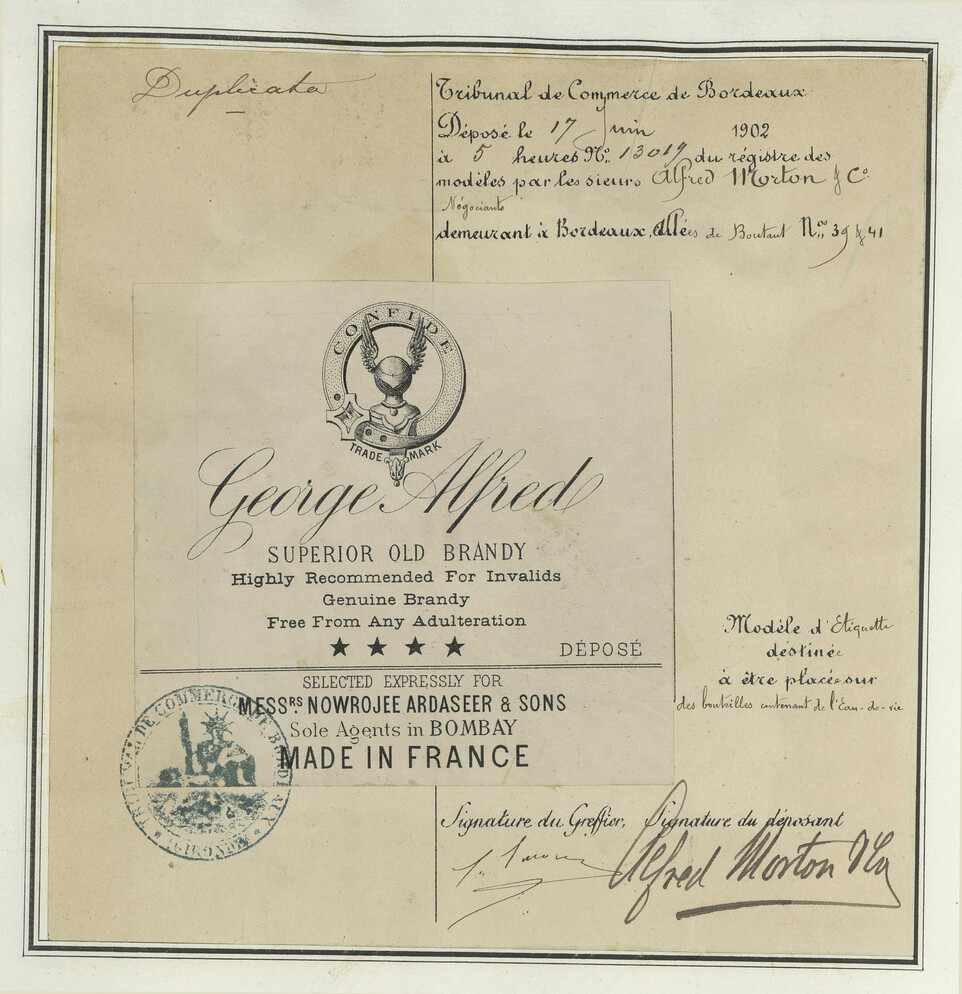 Duplicata
Tribunal de Commerce de Bordeaux
Déposé le 17 Juin 1902
à 5 heures No. 13019 du régistre des
modèles par les sieurs Alfred Morton & Co.
Négociants
demeurant à Bordeaux, Allées de Boutaut Nos 39 & 41
CONFIDE
TRADE MARK
George Alfred
SUPERIOR OLD BRANDY
Highly Recommended For Invalids
Genuine Brandy
Free From Any Adulteration
★ ★ ★ ★ DÉPOSÉ
SELECTED EXPRESSLY FOR
MESSRS NOWROJEE ARDASEER & SONS
Sole Agents in BOMBAY
MADE IN FRANCE
Modèle d'Etiquette
déstinée
à être placée sur
des bouteilles contenant de l'Eau-de-vie
TRIBUNAL DE COMMERCE DE BORDEAUX
GIRONDE
Signature du Greffier, Signature du déposant
Alfred Morton & Co